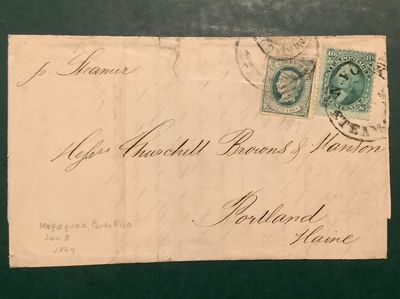 pr Steamer
Messrs Churchill Browns & Manson
Portland
Maine
Mayaguez, Porto Rico
Jan 8
1867
10 10
N.YO
STEAM